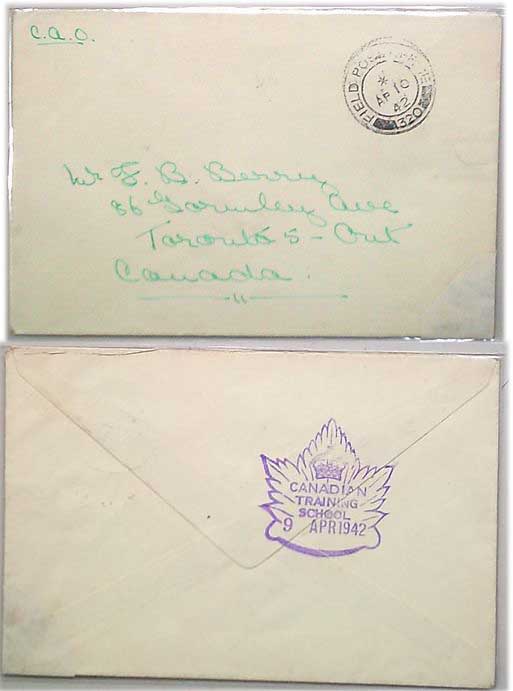 C.A.O.
FIELD POST OFFICE
*
AP 10
42
320
Mr F. B. Berry
86 Gormley Ave
Toronto 5 - Ont
Canada.
CANADIAN
TRAINING
SCHOOL
9 APR 1942